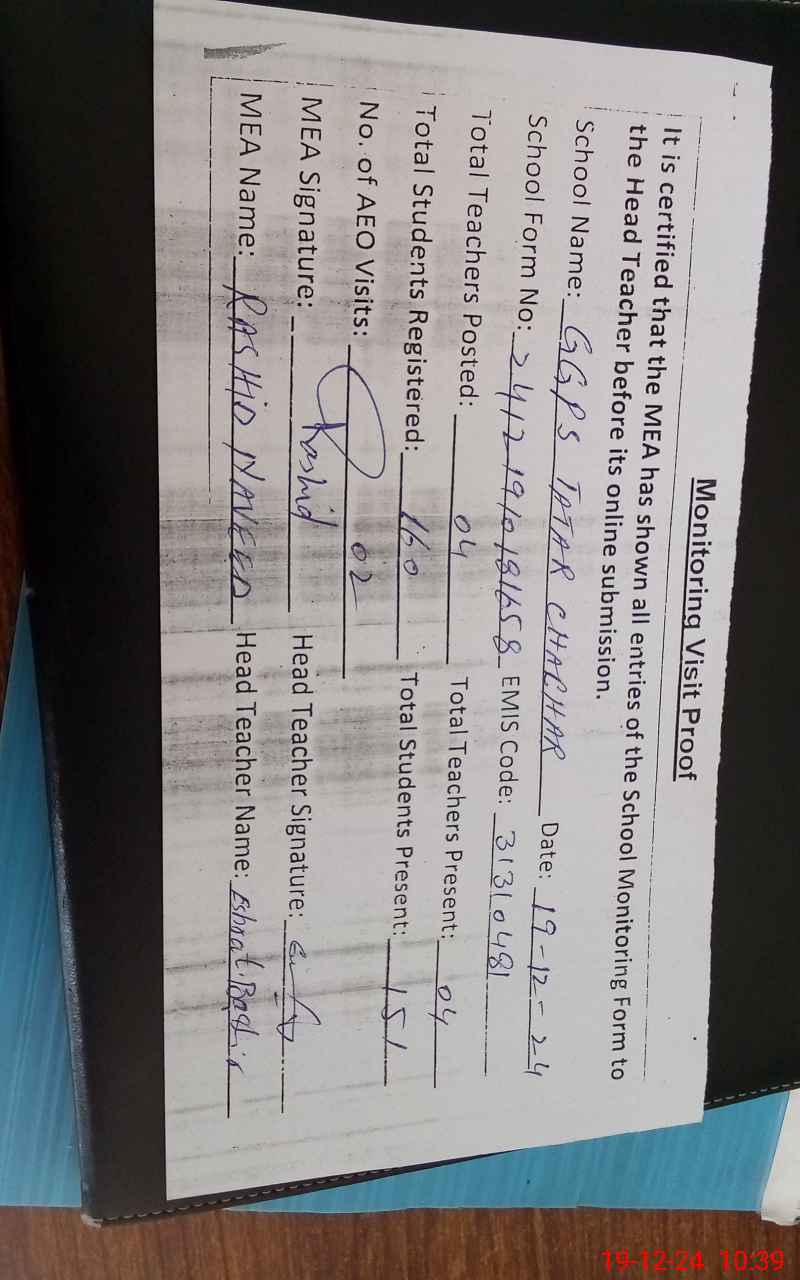 Monitoring Visit Proof
It is certified that the MEA has shown all entries of the School Monitoring Form to
the Head Teacher before its online submission.
School Name: GGPS TATAR CHACHAR Date: 19-12-24
School Form No: 24121910181658 EMIS Code: 31310481
Total Teachers Posted: 04 Total Teachers Present: 04
Total Students Registered: 160 Total Students Present: 151
No. of AEO Visits: 02
MEA Signature: Rashid Head Teacher Signature:
MEA Name: RASHID NAVEED Head Teacher Name: Eshrat Bashir
19-12-24 10:39